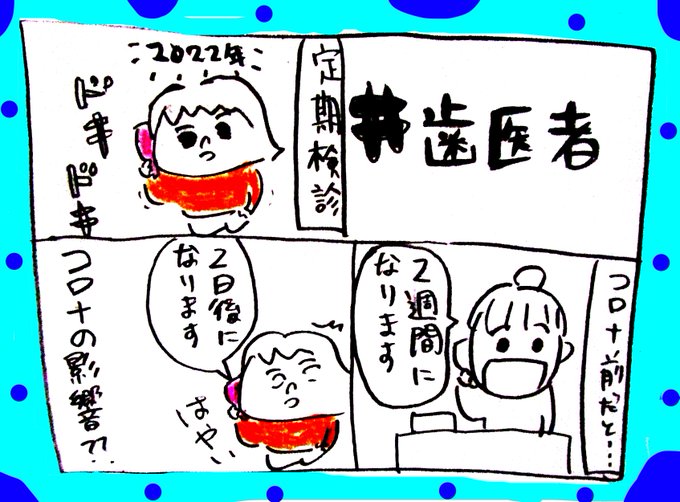 #歯医者
定期検診
2022年
ドキドキ
コロナ前だと…
2週間に
なります
2日後に
なります
はやい
コロナの影響??